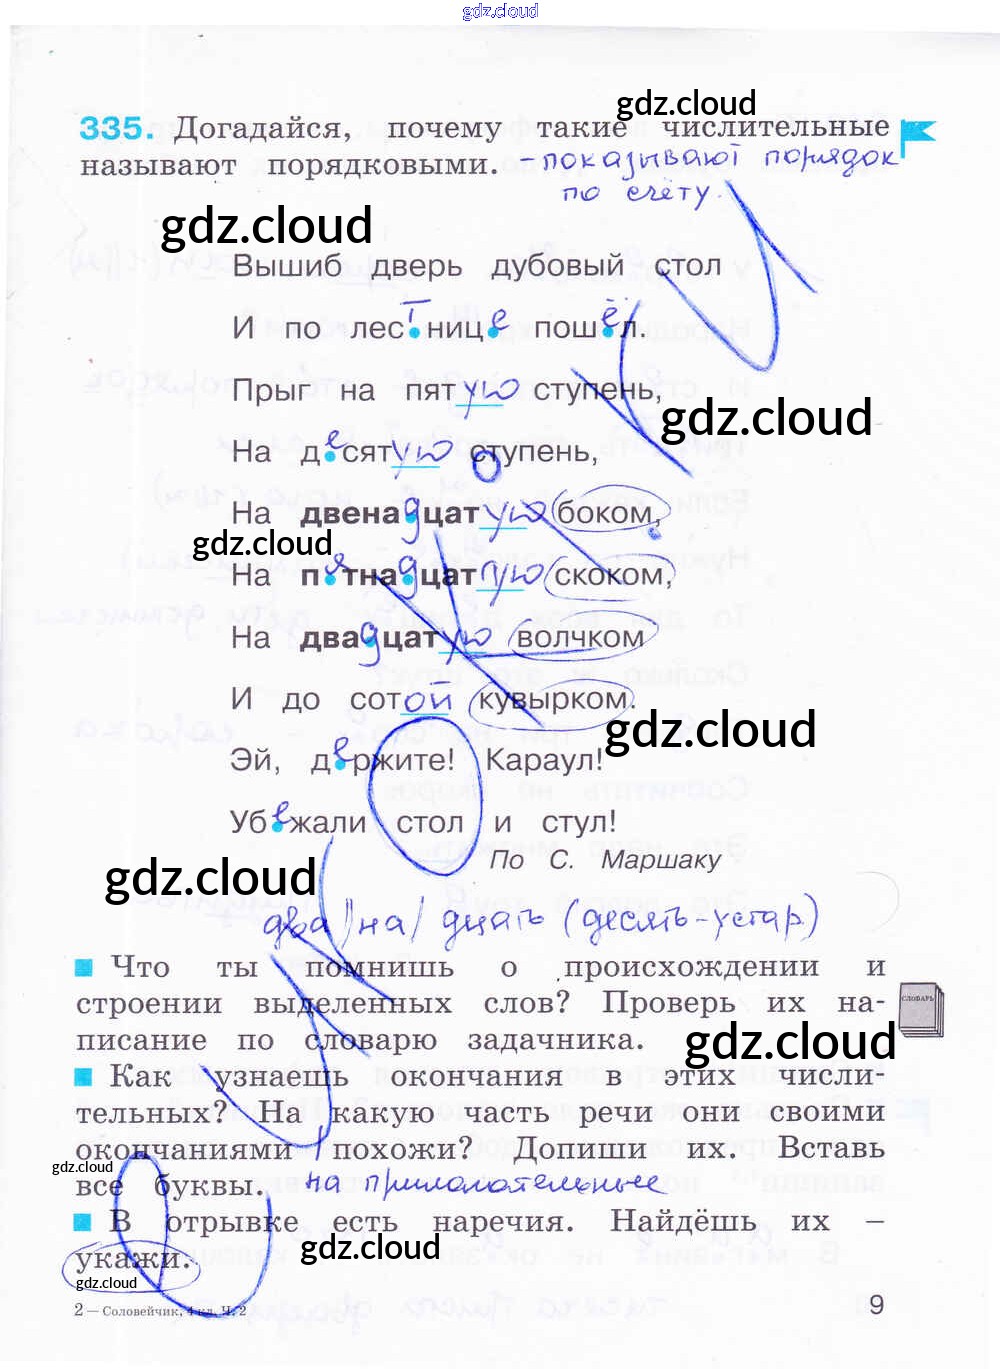 gdz.cloud
gdz.cloud
335. Догадайся, почему такие числительные
называют порядковыми. - показывают порядок
по счёту.
gdz.cloud
Вышиб дверь дубовый стол
И по лестнице пошёл.
Прыг на пятую ступень,
gdz.cloud
На десятую ступень,
На двенадцатую боком,
gdz.cloud
На пятнадцатую скоком,
На двадцатую волчком
И до сотой кувырком.
gdz.cloud
Эй, держите! Караул!
Убежали стол и стул!
По С. Маршаку
gdz.cloud
два/на/дцать (десять-устар)
Что ты помнишь о происхождении и
строении выделенных слов? Проверь их на-
СЛОВАРЬ
писание по словарю задачника.
gdz.cloud
Как узнаешь окончания в этих числи-
тельных? На какую часть речи они своими
окончаниями похожи? Допиши их. Вставь
gdz.cloud
все буквы. на прилагательные
В отрывке есть наречия. Найдёшь их –
укажи.
gdz.cloud
gdz.cloud
2 – Соловейчик, 4 кл. Ч. 2
9